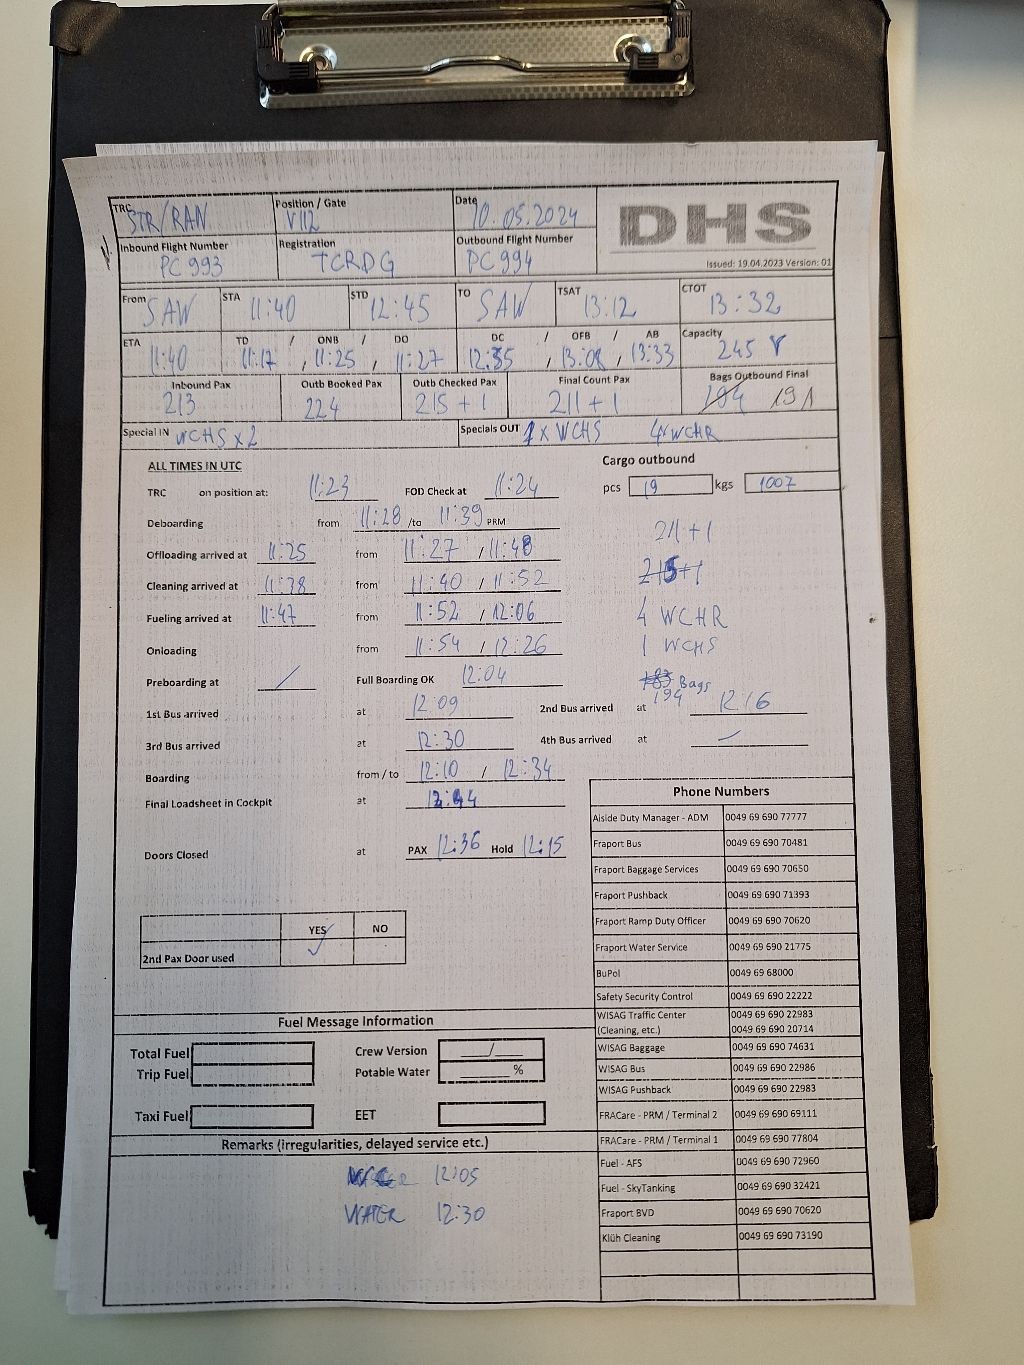 TRC STR/RAN Position / Gate V112 Date 10.05.2024 DHS
Inbound Flight Number PC 993 Registration TCRDG Outbound Flight Number PC 994 Issued: 19.04.2023 Version: 01
From SAW STA 11:40 STD 12:45 TO SAW TSAT 13:12 CTOT 13:32
ETA 11:40 TD / ONB / DO 11:17 , 11:25 , 11:27 DC / OFB / AB 12:35 , 13:08 , 13:33 Capacity 245 Y
Inbound Pax 213 Outb Booked Pax 224 Outb Checked Pax 215 + 1 Final Count Pax 211 + 1 Bags Outbound Final 194 191
Special IN WCHS x 2 Specials OUT 1 x WCHS 4x WCHR
ALL TIMES IN UTC
Cargo outbound
TRC on position at: 11:23 FOD Check at 11:24 pcs 19 kgs 1007
Deboarding from 11:28 /to 11:39 PRM
211 + 1
Offloading arrived at 11:25 from 11:27 / 11:48
215+1
Cleaning arrived at 11:38 from 11:40 / 11:52
Fueling arrived at 11:47 from 11:52 / 12:06 4 WCHR
Onloading from 11:54 / 12:26 1 WCHS
Preboarding at / Full Boarding OK 12:04 183 Bags
194
1st Bus arrived at 12:09 2nd Bus arrived at 12:16
3rd Bus arrived at 12:30 4th Bus arrived at
Boarding from / to 12:10 / 12:34
Final Loadsheet in Cockpit at
Doors Closed at PAX 12:36 Hold 12:15
YES NO
2nd Pax Door used ✓
Phone Numbers
Aiside Duty Manager - ADM 0049 69 690 77777
Fraport Bus 0049 69 690 70481
Fraport Baggage Services 0049 69 690 70650
Fraport Pushback 0049 69 690 71393
Fraport Ramp Duty Officer 0049 69 690 70620
Fraport Water Service 0049 69 690 21775
BuPol 0049 69 68000
Safety Security Control 0049 69 690 22222
WISAG Traffic Center 0049 69 690 22983
(Cleaning, etc.) 0049 69 690 20714
WISAG Baggage 0049 69 690 74631
WISAG Bus 0049 69 690 22986
WISAG Pushback 0049 69 690 22983
FRACare - PRM / Terminal 2 0049 69 690 69111
FRACare - PRM / Terminal 1 0049 69 690 77804
Fuel - AFS 0049 69 690 72960
Fuel - SkyTanking 0049 69 690 32421
Fraport BVD 0049 69 690 70620
Klüh Cleaning 0049 69 690 73190
Fuel Message Information
Total Fuel Crew Version /
Trip Fuel Potable Water %
Taxi Fuel EET
Remarks (irregularities, delayed service etc.)
12:05
WATER 12:30